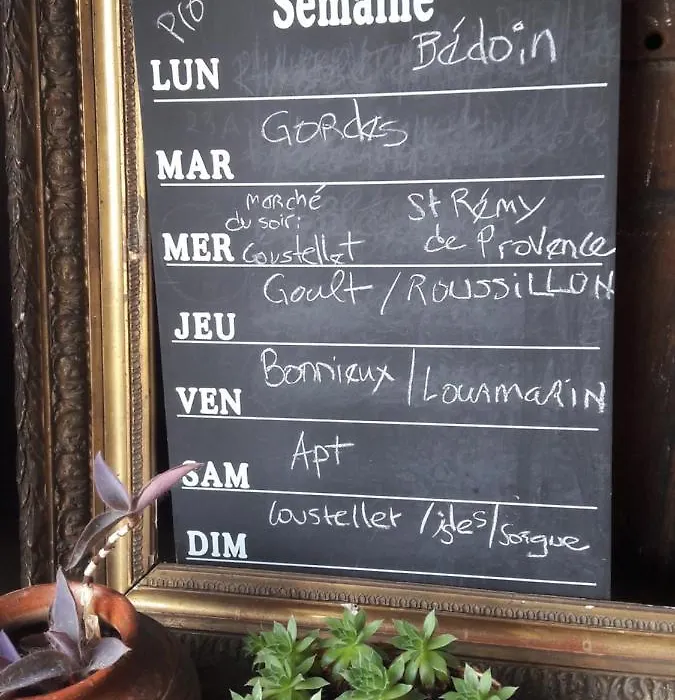 Semaine
LUN Bédoin
MAR Gordes
marché
du soir:
St Rémy
MER Coustellet de Provence
Goult / ROUSSILLON
JEU
Bonnieux / LOURMARIN
VEN
Apt
SAM
Coustellet / isles / Sorgue
DIM